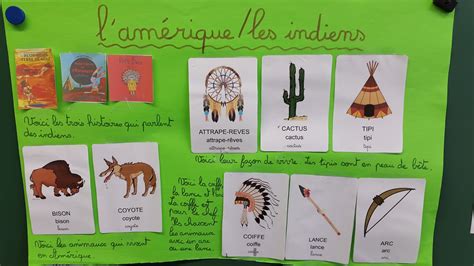 l'amérique/les indiens
Voici les trois histoires qui parlent
des indiens.
ATTRAPE-REVES
attrape-rêves
attrape-rêves
CACTUS
cactus
cactus
TIPI
tipi
tipi
Voici leur façon de vivre. Les tipis sont en peau de bête.
BISON
bison
bison
COYOTE
coyote
coyote
Voici les animaux qui vivent
en amérique.
Voici la coiffe,
la lance et
La coiffe est
pour le chef.
Ils chassent
les animaux
avec un arc
ou une lance.
COIFFE
coiffe
coiffe
LANCE
lance
lance
ARC
arc
arc